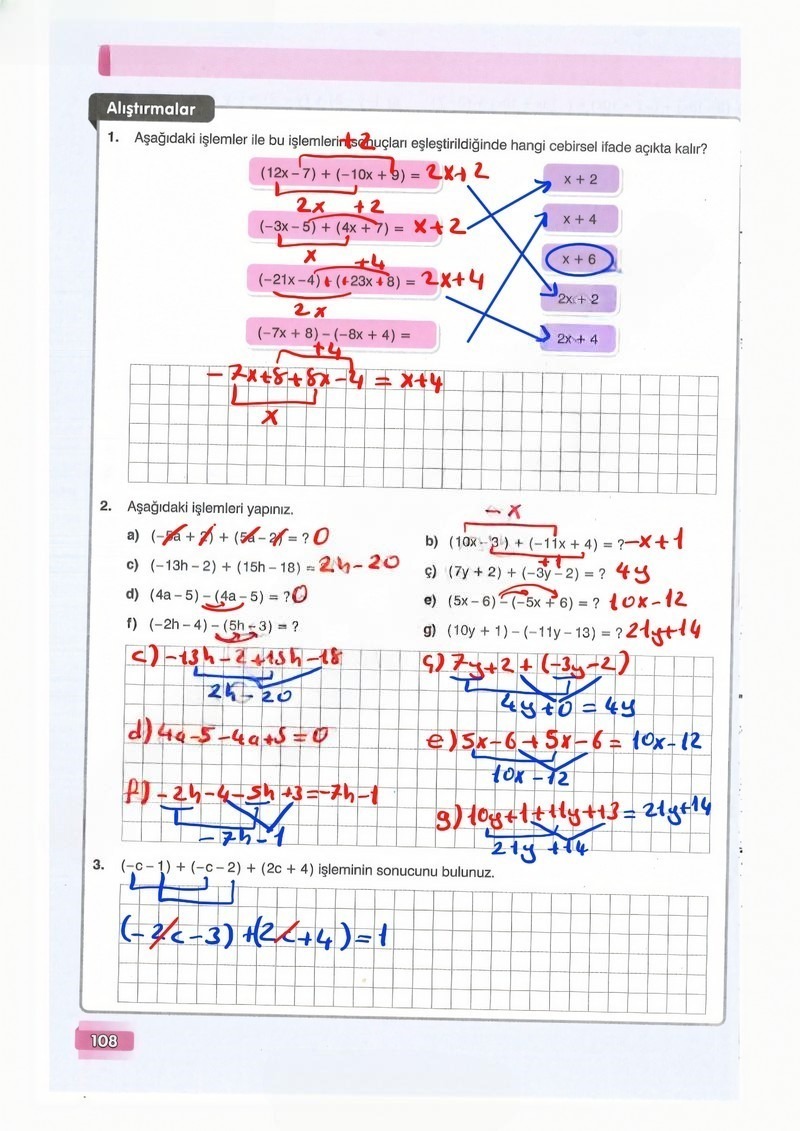 Alıştırmalar
1. Aşağıdaki işlemler ile bu işlemlerin sonuçları eşleştirildiğinde hangi cebirsel ifade açıkta kalır?
+2
(12x – 7) + (–10x + 9) = 2x+2
x + 2
2x +2
x + 4
(–3x – 5) + (4x + 7) = x+2
x +4
x + 6
(–21x – 4) + (+23x + 8) = 2x+4
2x + 2
2x
(–7x + 8) – (–8x + 4) =
2x + 4
+4
- 7x+8+8x-4 = x+4
x
2. Aşağıdaki işlemleri yapınız.
- x
a) (–5a + 2) + (5a – 2) = ? 0
b) (10x – 3 ) + (–11x + 4) = ? -x+1
+1
c) (–13h – 2) + (15h – 18) = 2h-20
ç) (7y + 2) + (–3y – 2) = ? 4y
d) (4a – 5) – (4a – 5) = ? 0
e) (5x – 6) – (–5x + 6) = ? 10x-12
f) (–2h – 4) – (5h – 3) = ?
g) (10y + 1) – (–11y – 13) = ? 21y+14
c) -13h-2+15h-18
2h-20
ç) 7y+2+(-3y-2)
4y+0 = 4y
d) 4a-5-4a+5=0
e) 5x-6+5x-6= 10x-12
10x-12
f) -2h-4-5h+3=-7h-1
-7h-1
g) 10y+1+11y+13= 21y+14
21y+14
3. (–c – 1) + (–c – 2) + (2c + 4) işleminin sonucunu bulunuz.
(-2c-3) +(2c+4)=1
108